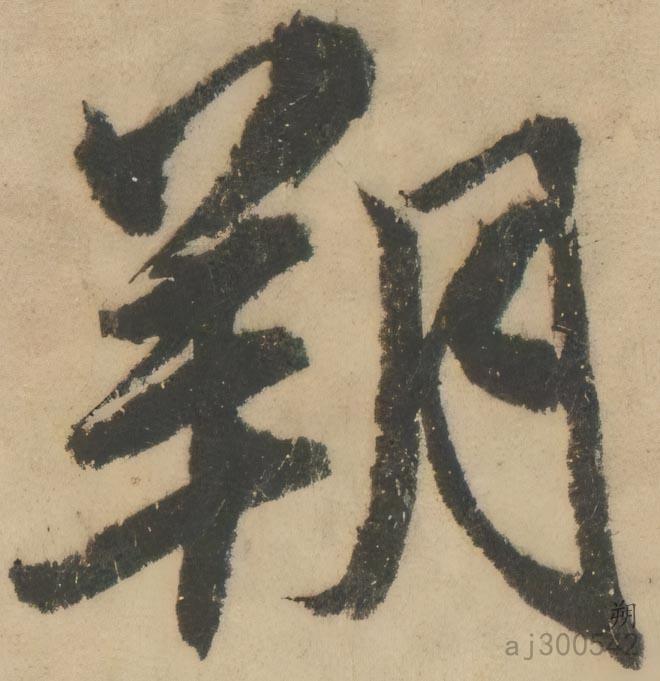 朔
朔
aj300542